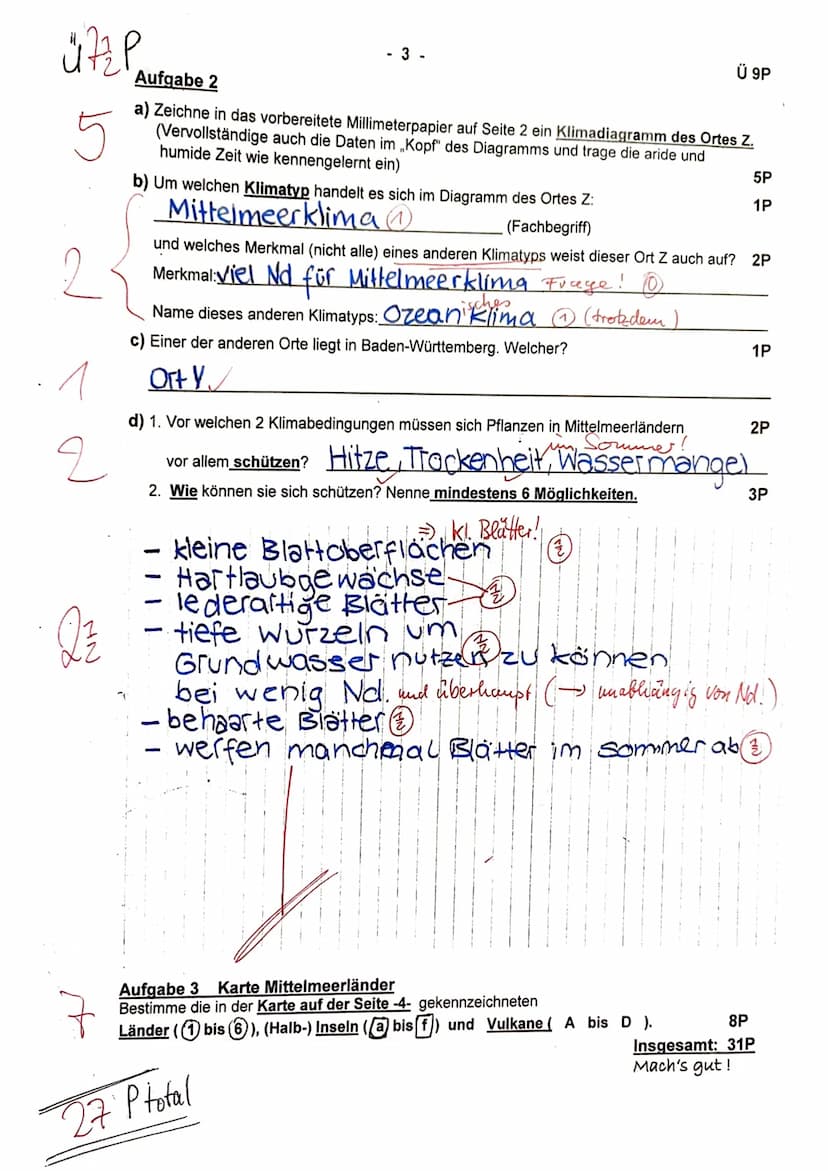 Ü 7½ P
- 3 -
Ü 9P
Aufgabe 2
5
a) Zeichne in das vorbereitete Millimeterpapier auf Seite 2 ein Klimadiagramm des Ortes Z.
(Vervollständige auch die Daten im „Kopf" des Diagramms und trage die aride und
humide Zeit wie kennengelernt ein)
5P
b) Um welchen Klimatyp handelt es sich im Diagramm des Ortes Z:
1P
Mittelmeerklima 1 (Fachbegriff)
und welches Merkmal (nicht alle) eines anderen Klimatyps weist dieser Ort Z auch auf? 2P
2
Merkmal: viel Nd für Mittelmeerklima Frage! 0
isches
Name dieses anderen Klimatyps: Ozeanklima 1 (trotzdem)
c) Einer der anderen Orte liegt in Baden-Württemberg. Welcher?
1P
1
Ort Y
d) 1. Vor welchen 2 Klimabedingungen müssen sich Pflanzen in Mittelmeerländern 2P
im Sommer!
2
vor allem schützen? Hitze, Trockenheit, Wassermangel
2. Wie können sie sich schützen? Nenne mindestens 6 Möglichkeiten. 3P
⇒ kl. Blätter!
- kleine Blattoberflächen ½
- Hartlaubgewächse
- lederartige Blätter ½
2½
- tiefe Wurzeln um ½
Grundwasser nutzen zu können
bei wenig Nd. und überhaupt (→ unabhängig von Nd.)
- behaarte Blätter ½
- werfen manchmal Blätter im sommer ab ½
7
Aufgabe 3 Karte Mittelmeerländer
Bestimme die in der Karte auf der Seite -4- gekennzeichneten
Länder (① bis ⑥), (Halb-) Inseln (a bis f) und Vulkane ( A bis D ). 8P
Insgesamt: 31P
Mach's gut !
27 P total